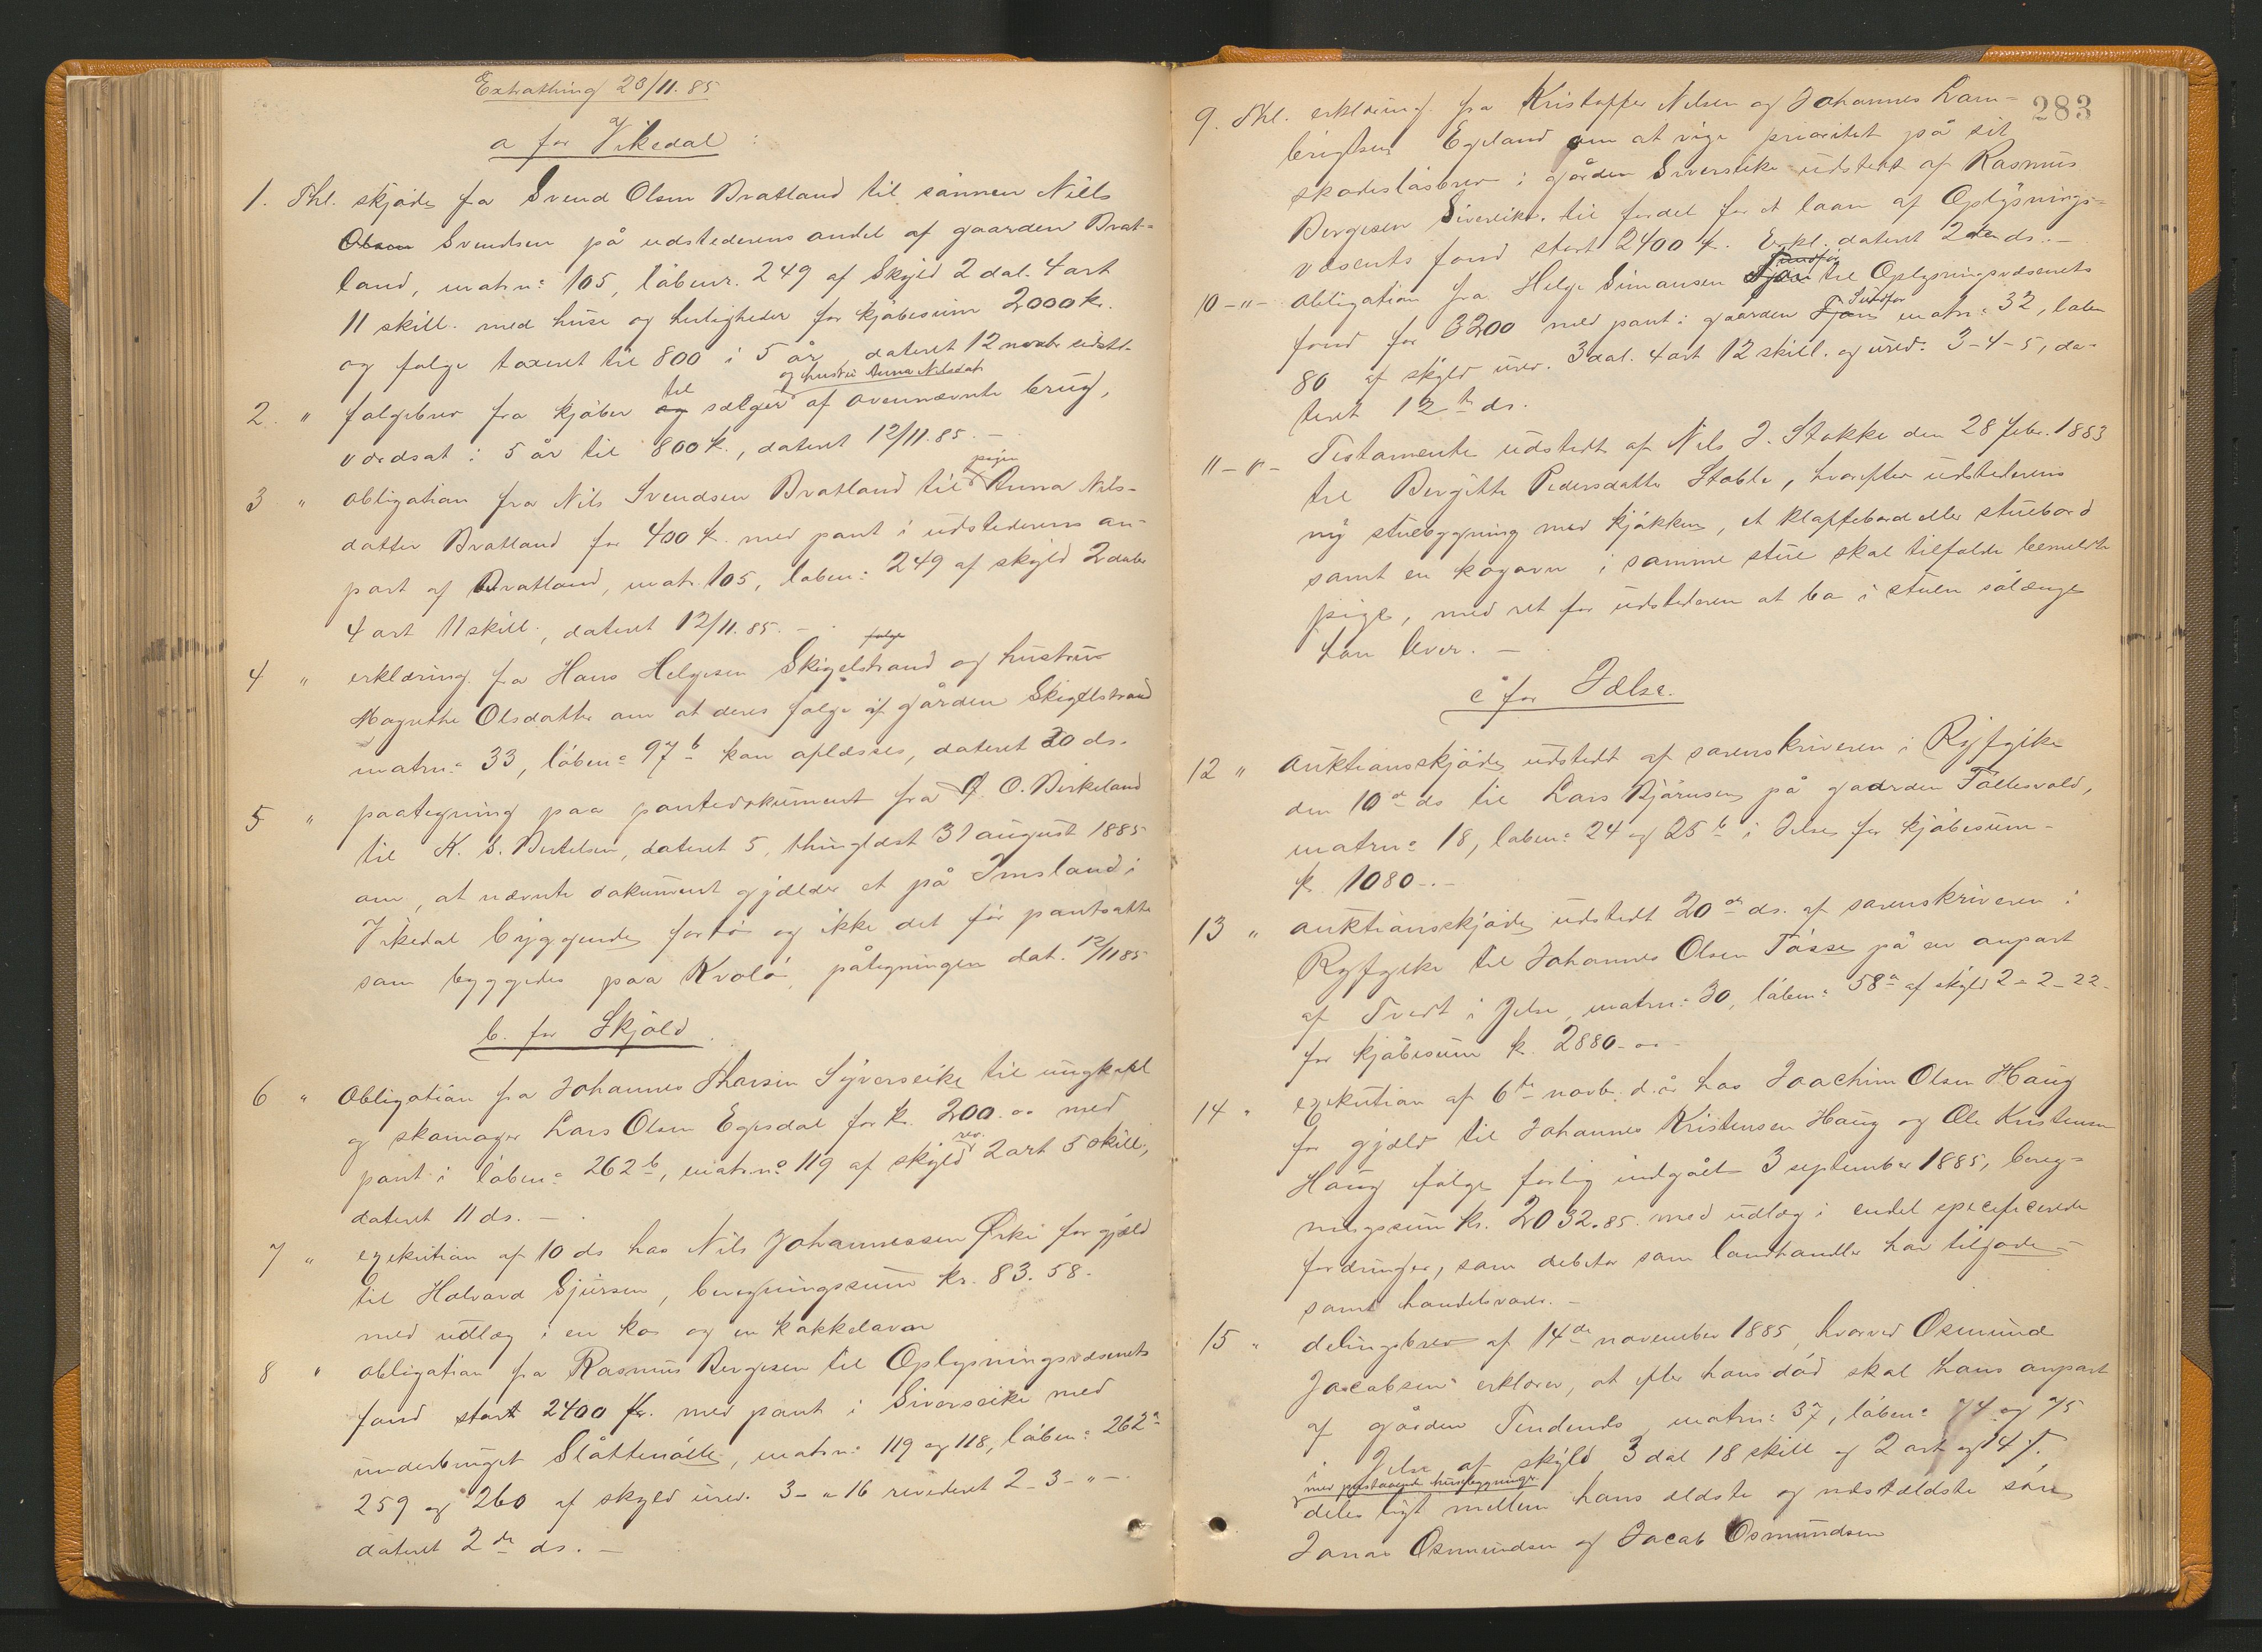 Extrathing 23/11. 85
a for Vikedal :
1. Thl. skjøde fra Svend Olsen Bratland til sønnen Nills
Olson Svendsen på udstederens andel af gaarden Brat-
land, matrn: 105, løbenr. 249 af Skyld 2 dal. 4 ort
11 skill. med huse og herligheder for kjøbesum 2000 kr.
og følge taxeret til 800 i 5 år, dateret 12 novbr sidstl.
og hustru Anna Nilsdat
2. " følgebrev fra kjøber og til sælger af ovennævnte brug,
værdsat i 5 år til 800 k., dateret 12/11. 85. -
pigen
3 " obligation fra Nils Svendsen Bratland til Anna Nils-
datter Bratland for 400 k. med pant i udstederens an-
part af Bratland, matr. 105, løben: 249 af skyld 2 daler
4 ort 11 skill., dateret 12/11. 85. -
følge
4 " erklæring fra Hans Helgesen Skigelstrand og hustru
Magrethe Olsdatter om at deres følge af gården Skigelstrand
matrn: 33, løben: 97 b kan aflæsses, dateret 20 ds.
5 " paategning paa pantedokument fra O. O. Birkeland
til K. S. Bertelsen, dateret 5, thinglæst 31 august 1885
om, at nævnte dokument gjælder et på Imsland i
Vikedal byggende fartøi og ikke det før pantsatte
som byggedes paa Kvalø, påtegningen dat. 12/11 85
b. for Skjold.
6 " Obligation fra Johannes Tharsen Syverseike til ungkarl
og skomager Lars Olsen Egesdal for k. 200.00 med
rev.
pant i løben: 262 b, matrno 119 af skyld 2 ort 5 skill,
dateret 11 ds. -
7 " exekution af 10 ds hos Nils Johannessen Ørke for gjæld
til Halvard Sjursen, beregningssum kr. 83. 58.
med udlæg i en ko og en kakkelavn
8 " obligation fra Rasmus Bergesen til Oplysningsvæsenets
fond stort 2400 kr. med pant i Siverseike med
underbruget Slåttenølle, matrn: 119 og 118, løben: 262 a
259 og 260 af skyld urev. 3 - " 16 revideret 2 - 3 - " -
dateret 2 de ds. -
283
9. Thl. erklæring fra Kristoffer Nilsen og Johannes Lam-
brigtsen Egeland om at vige prioritet på sit
skadesløsbrev i gården Siverseike udstedt af Rasmus
Bergesen Siverseike til fordel for et laan af Oplysnings-
væsents fond stort 2400 k. Erkl. dateret 2den ds. -
Sundfør
10 - " - obligation fra Helge Simonsen Tjøn til Oplysningsvæsenets
Sundfør
fond for 3200 med pant i gaarden Tjøn matrn: 32, løben
80 af skyld urev. 3 dal. 4 ort 12 skill. og urev. 3 - 4 - 5, da-
teret 12 te ds.
11 - " - Testamente udstedt af Nils J. Stakke den 28 febr. 1883
til Bergitte Pedersdatter Stable, hvorefter udstederens
ny stuebygning med kjøkken, et klaffebord eller stuebord
samt en kogovn i samme stue skal tilfalde bemeldte
pige, med ret for udstederen at bo i stuen sålænge
han lever. -
c for Jælse.
12 " auktionsskjøde udstedt af sorenskriveren i Ryfylke
den 10 de ds til Lars Bjørnsen på gaarden Føllesvold,
matrn: 18, løben: 24 og 25 b i Jelse for kjøbesum
k. 1080 -.-
13 " auktionsskjøde udstedt 20 de ds. af sorenskriveren i
Ryfylke til Johannes Olsen Tøsse på en anpart
af Tveit i Jelse, matrn: 30, løben: 58 a af skyld 2 - 2 - 22.
for kjøbesum k. 2880-00
14 " exekution af 6 te novb. d. år hos Joachim Olsen Haug
for gjæld til Johannes Kristensen Haug og Ole Kristensen
Haug ifølge forlig indgået 3 september 1885, bereg-
ningssum kr. 2032.85. med udlæg i endel specificerede
fordringer, som debitor som landhandler har tilgode -
samt handelsvarer. -
15 " delingsbrev af 14 de november 1885, hvorved Osmund
Jacabsen erklærer, at efter hans død skal hans anpart
af gården Tendenes matrn: 37, løben: 74 og 75
i Jelse af skyld 3 dal 18 skill og 2 ort og 14 s.
med påstaaende husebygninger
deles ligt mellem hans ældste og næstældste søn
Jonas Osmundsen og Jacab Osmundsen